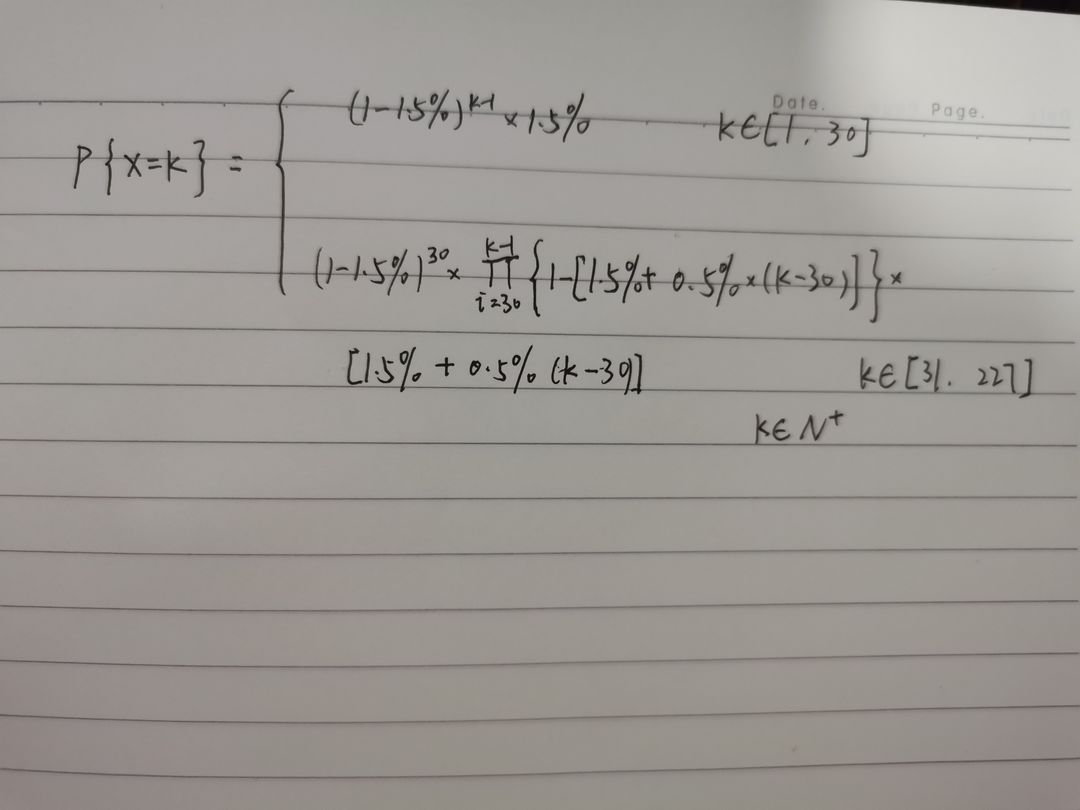 Date. Page.
(1-1.5%)^{k-1} × 1.5% k∈[1, 30]
P{X=k} =
(1-1.5%)^{30} × ∏_{i=30}^{k-1} {1-[1.5%+ 0.5%×(k-30)]}×
[1.5% + 0.5% (k-30)] k∈[31. 227]
k∈N⁺